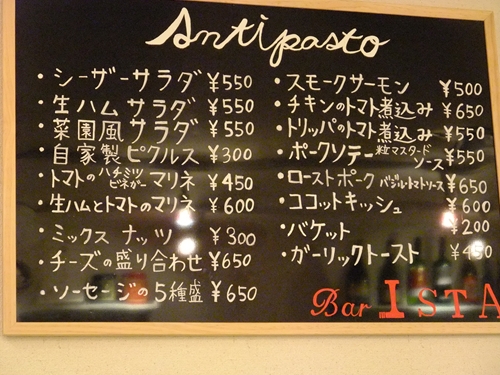 Antipasto
・シーザーサラダ ¥550
・生ハムサラダ ¥550
・菜園風サラダ ¥550
・自家製ピクルス ¥300
・トマトのハチミツビネガーマリネ ¥450
・生ハムとトマトのマリネ ¥600
・ミックスナッツ ¥300
・チーズの盛り合わせ ¥650
・ソーセージの5種盛 ¥650
・スモークサーモン ¥500
・チキンのトマト煮込み ¥650
・トリッパのトマト煮込み ¥550
・ポークソテー粒マスタードソース ¥550
・ローストポークバジルトマトソース ¥650
・ココットキッシュ ¥600
・バケット ¥200
・ガーリックトースト
Bar ISTA